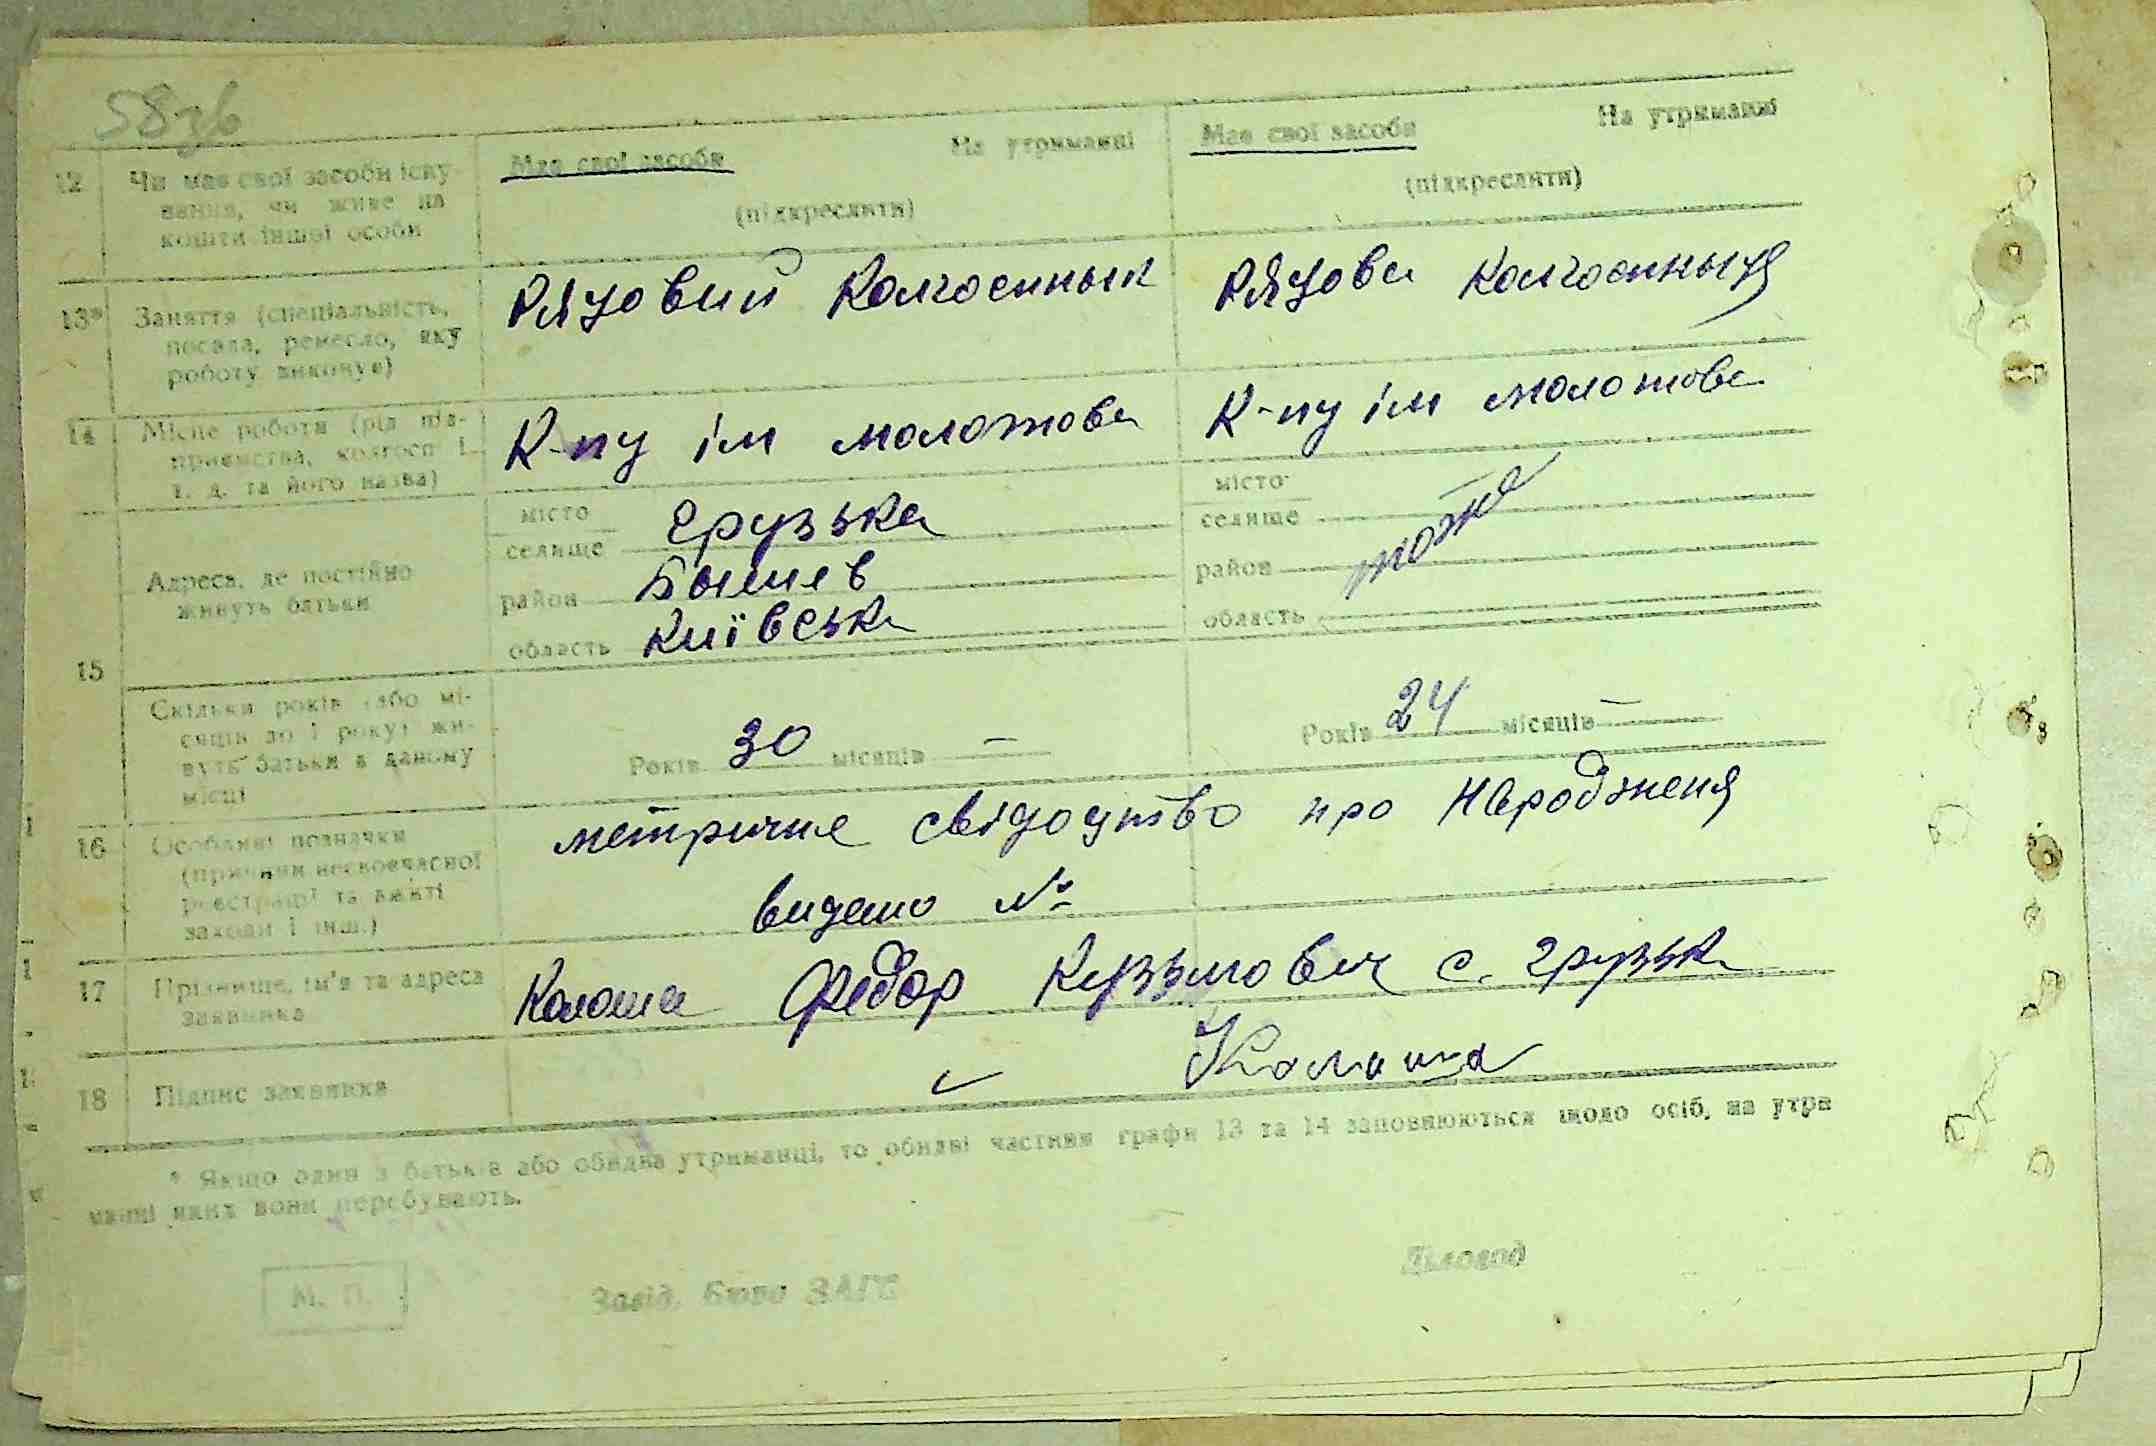 58зв
Має свої засоби На утриманні Має свої засоби На утриманні
12 Чи має свої засоби існування, чи живе на кошти іншої особи (підкреслити) (підкреслити)
13* Заняття (спеціальність, посада, ремесло, яку роботу виконує) Рядовий Колгоспнык Рядова Колгоспныця
14 Місце роботи (рід підприємства, колгосп і т. д. та його назва) К-пу ім молотова К-пу ім молотова
15 Адреса, де постійно живуть батьки
місто
селище Грузька
район Бышев
область Київська
місто
селище
район тоже
область
Скільки років (або місяців до 1 року) живуть батьки в даному місці Років 30 місяців — Років 24 місяців —
16 Особливі позначки (причини несвоєчасної реєстрації та вжиті заходи і інш.) метричне свідоцтво про Народженя
видано №
17 Прізвище, ім'я та адреса заявника Колоша Федор Кузьмович с. Грузька
18 Підпис заявника Колоша
* Якщо один з батьків або обидва утриманці, то обидві частини графи 13 та 14 заповнюються щодо осіб, на утри
манні яких вони перебувають.
М. П. Завід. бюро ЗАГС Діловод